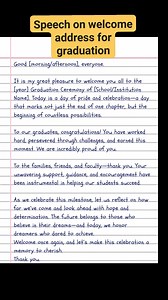 Speech on welcome
address for
graduation
Good [morning/afternoon], everyone.
It is my great pleasure to welcome you all to the
[year] Graduation Ceremony of [School/Institution
Name]. Today is a day of pride and celebration—a day
that marks not just the end of one chapter, but the
beginning of countless possibilities.
To our graduates, congratulations! You have worked
hard, persevered through challenges, and earned this
moment. We are incredibly proud of you.
To the families, friends, and faculty—thank you. Your
unwavering support, guidance, and encouragement have
been instrumental in helping our students succeed.
As we celebrate this milestone, let us reflect on how
far we've come and look ahead with hope and
determination. The future belongs to those who
believe in their dreams—and today, we honor
dreamers who dared to achieve.
Welcome once again, and let's make this celebration a
memory to cherish.
Thank you.